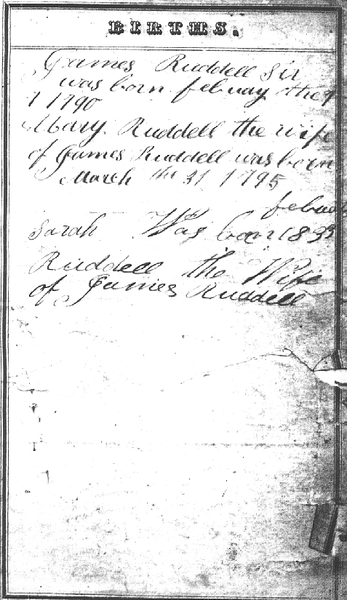 BIRTHS.
James Ruddell Sir
was born febuay the 9
1790
Mary. Ruddell the wife
of James Ruddell was born
March the 31 1795
febua
Sarah Was born 1833
Ruddell the Wife
of James Ruddell